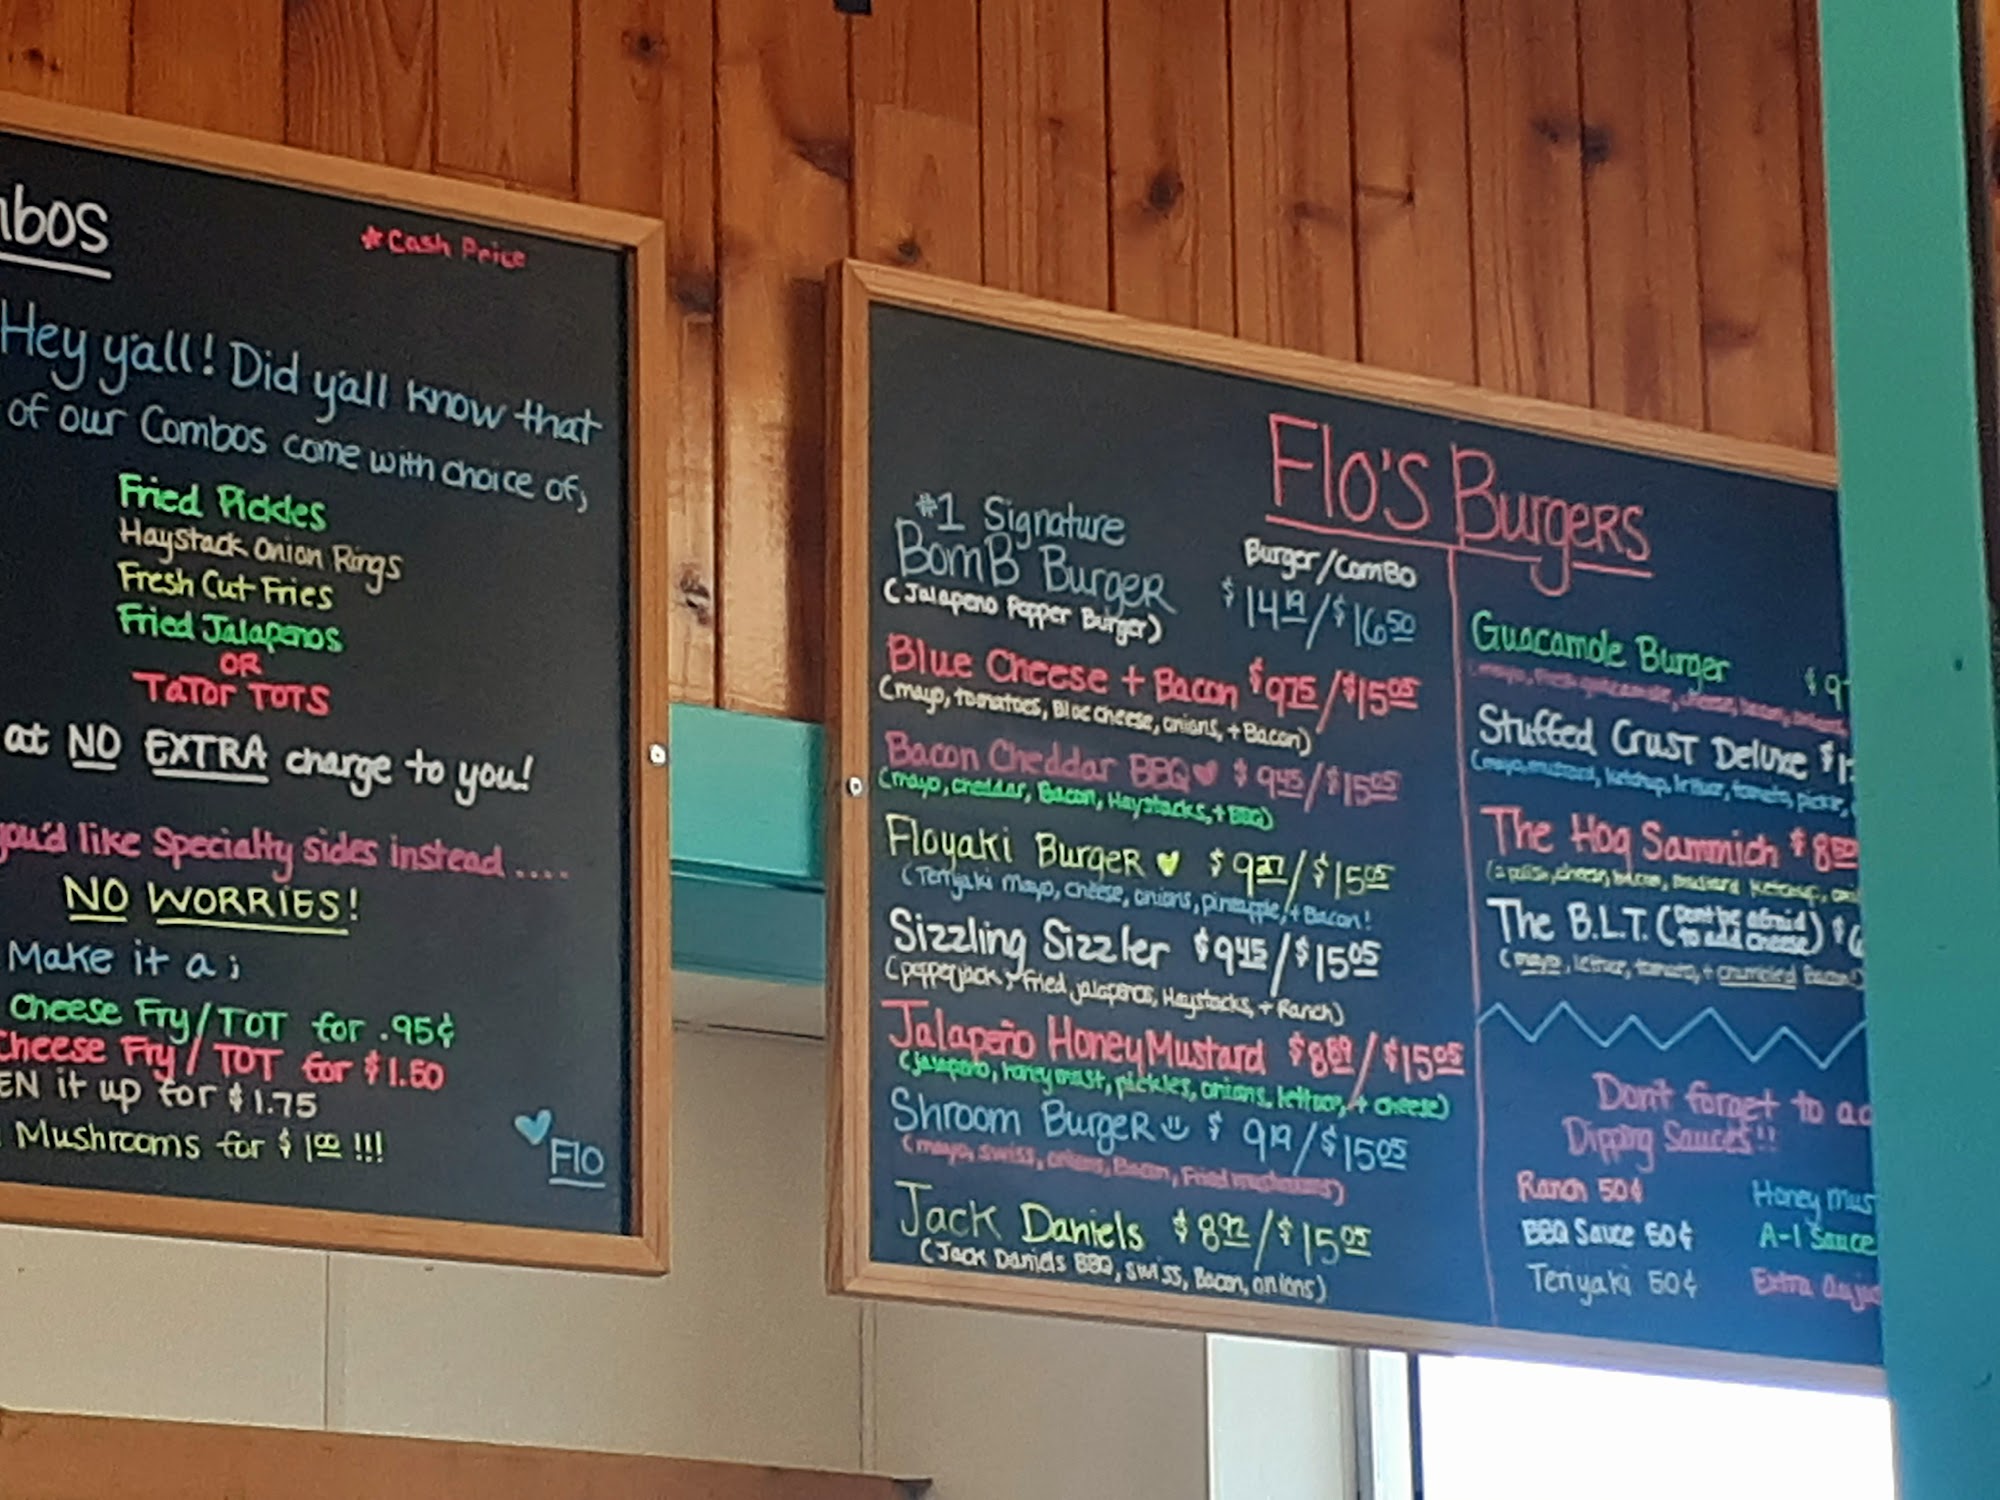 * Cash Price
Hey y'all! Did y'all know that
of our Combos come with choice of,
Fried Pickles
Haystack Onion Rings
Fresh Cut Fries
Fried Jalapenos
OR
TaTor TOTS
at NO EXTRA charge to you!
you'd like Specialty sides instead ....
NO WORRIES!
Make it a ;
Cheese Fry/TOT for .95¢
Cheese Fry/TOT for $1.50
it up for $1.75
Mushrooms for $1.00 !!!
Flo
Flo's Burgers
Burger/Combo
#1 Signature
BomB Burger $14.19/$16.50
(Jalapeno Popper Burger)
Blue Cheese + Bacon $9.75/$15.05
(mayo, tomatoes, Blue cheese, onions, + Bacon)
Bacon Cheddar BBQ ♥ $9.45/$15.05
(mayo, cheddar, Bacon, Haystacks, + BBQ)
Floyaki Burger ♥ $9.27/$15.05
(Teriyaki mayo, cheese, onions, pineapple, + Bacon!
Sizzling Sizzler $9.45/$15.05
(pepperjack, Fried jalapenos, Haystacks, + Ranch)
Jalapeño Honey Mustard $8.89/$15.05
(jalapeño, honey must, pickles, onions, lettuce, + cheese)
Shroom Burger $9.19/$15.05
(mayo, swiss, onions, Bacon, Fried mushrooms)
Jack Daniels $8.92/$15.05
(Jack Daniels BBQ, swiss, Bacon, onions)
Guacamole Burger $9
(mayo, Fresh guacamole, cheese, bacon,
Stuffed Crust Deluxe $1
(mayo, mustard, ketchup, lettuce, tomato, pickle,
The Hog Sammich $8.50
(2 polish, cheese, bacon, mustard, ketchup,
The B.L.T. (Don't be afraid to add cheese) $6
(mayo, lettuce, tomato, + crumbled Bacon!)
Don't forget to
Dipping Sauces!!
Ranch 50¢
BBQ Sauce 50¢
Teriyaki 50¢
Honey Mus
A-1 Sauce
Extra